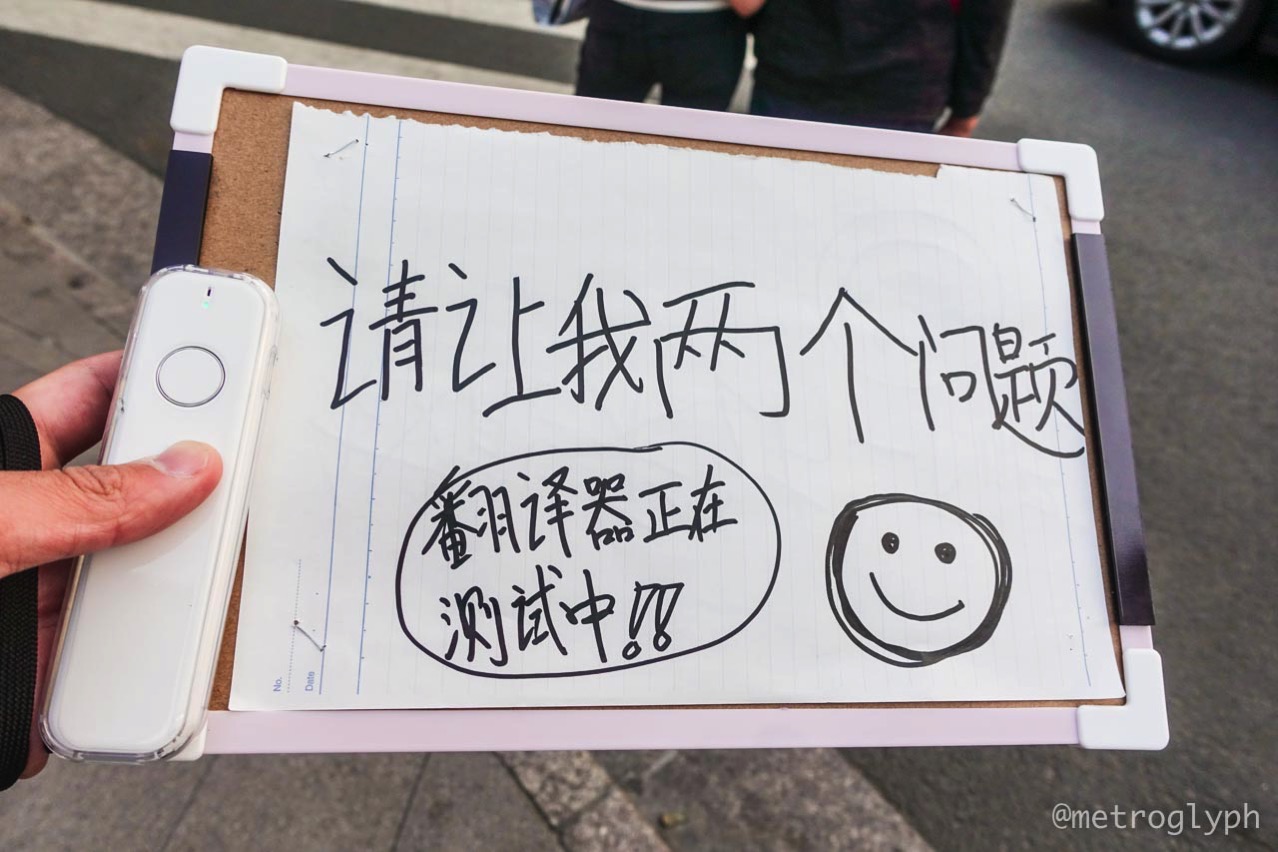 请让我两个问题
翻译器正在
测试中!!
No.
Date
@metroglyph